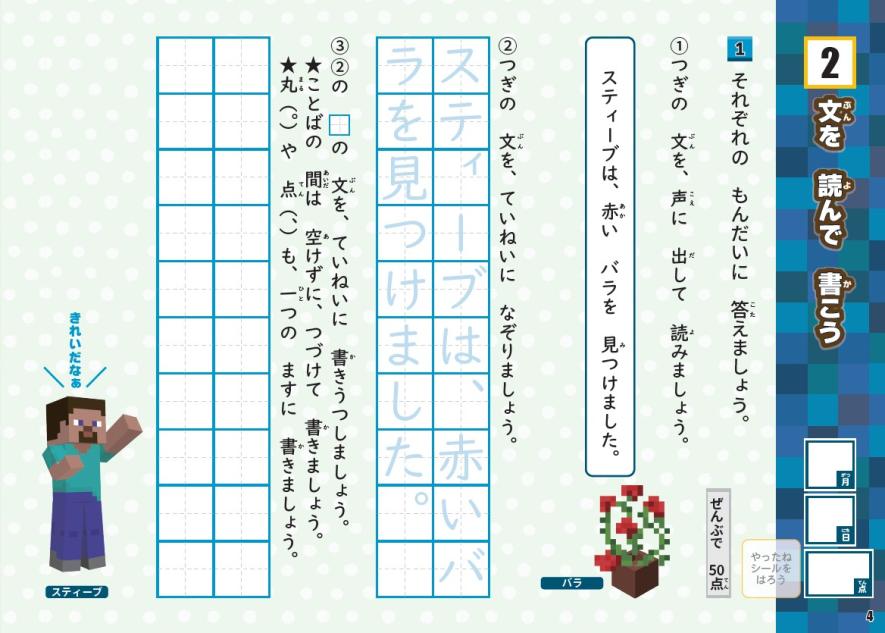 2
文を 読んで 書こう
月
日
点
やったね
シールを
はろう
1 それぞれの もんだいに 答えましょう。
ぜんぶで 50点
①つぎの 文を、声に 出して 読みましょう。
スティーブは、赤い バラを 見つけました。
バラ
②つぎの 文を、ていねいに なぞりましょう。
スティーブは、赤いバ
ラを見つけました。
③②の □の 文を、ていねいに 書きうつしましょう。
★ことばの 間は 空けずに、つづけて 書きましょう。
★丸(。)や 点(、)も、一つの ますに 書きましょう。
きれいだなぁ
スティーブ
4